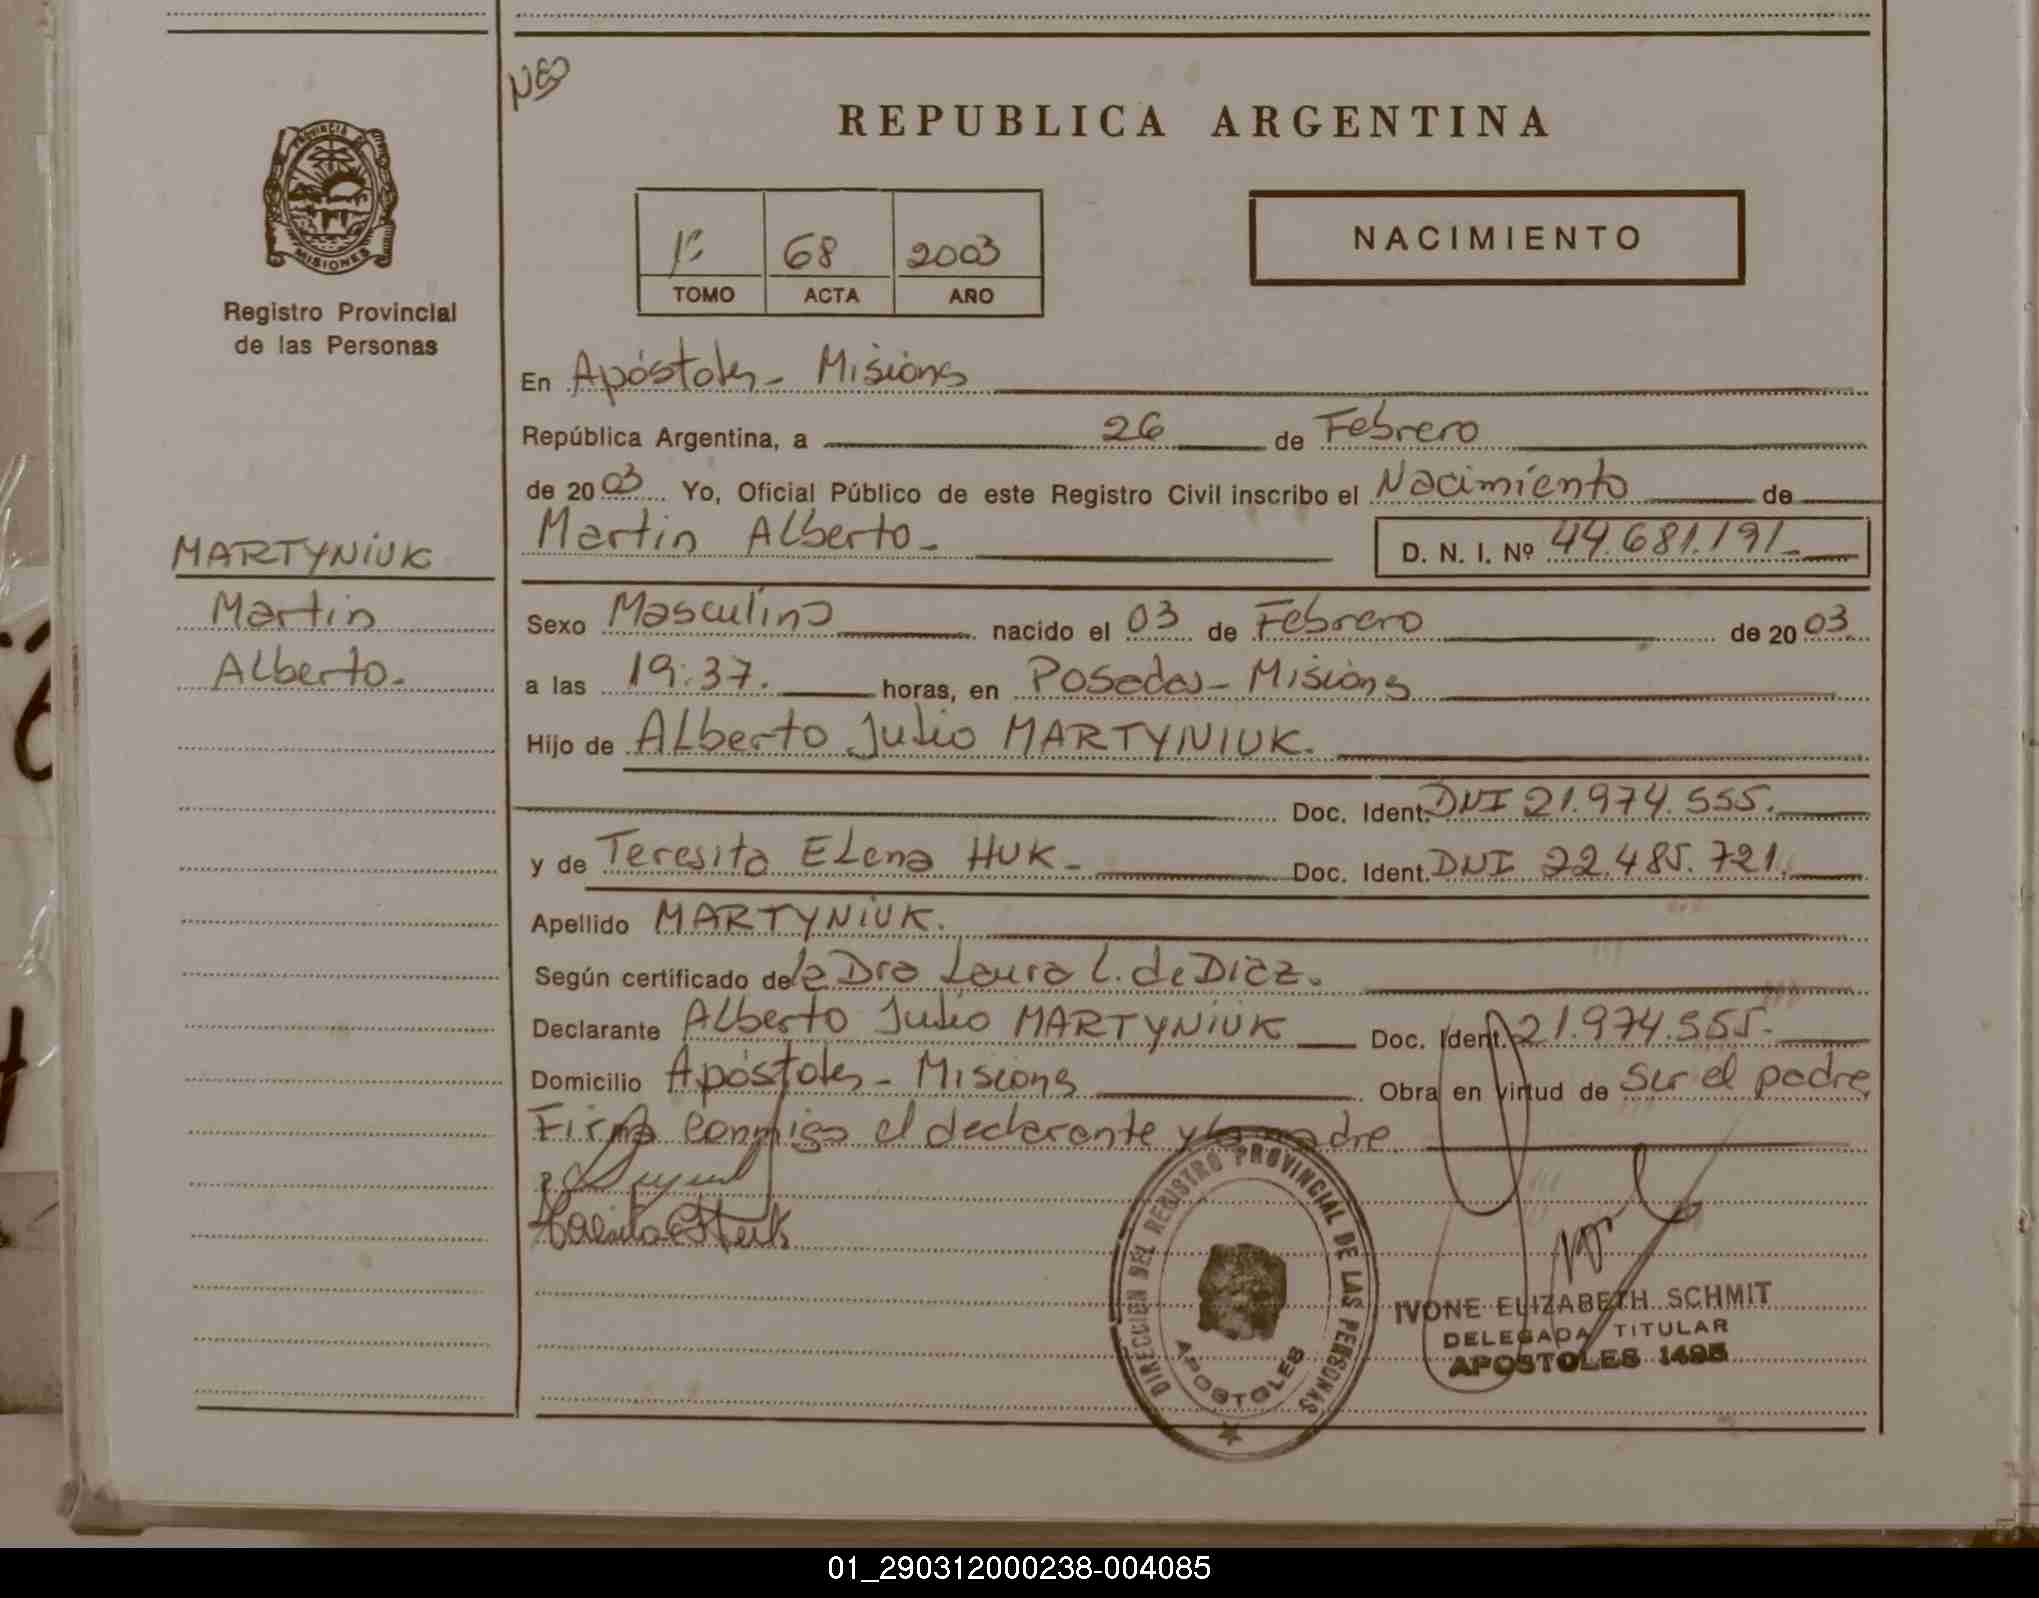 NEO
REPUBLICA ARGENTINA
PROVINCIA DE
MISIONES
NACIMIENTO
1º 68 2003
TOMO ACTA AÑO
Registro Provincial
de las Personas
En Apóstoles - Misiones
República Argentina, a 26 de Febrero
de 2003 Yo, Oficial Público de este Registro Civil inscribo el Nacimiento de
MARTYNIUK
Martin
Alberto.
Martin Alberto - D. N. I. Nº 44.681.191
Sexo Masculino nacido el 03 de Febrero de 2003
a las 19:37. horas, en Posadas - Misiones
Hijo de Alberto Julio MARTYNIUK.
Doc. Ident. DNI 21.974.555.
y de Teresita Elena HUK - Doc. Ident. DNI 22.485.721.
Apellido MARTYNIUK.
Según certificado de la Dra Laura L. de Diaz.
Declarante Alberto Julio MARTYNIUK Doc. Ident. 21.974.555.
Domicilio Apóstoles - Misiones Obra en virtud de ser el padre
Firma conmigo el declarante y la madre
DIRECCION DEL REGISTRO PROVINCIAL DE LAS PERSONAS
APOSTOLES
IVONE ELIZABETH SCHMIT
DELEGADA TITULAR
APOSTOLES 1495
01_290312000238-004085